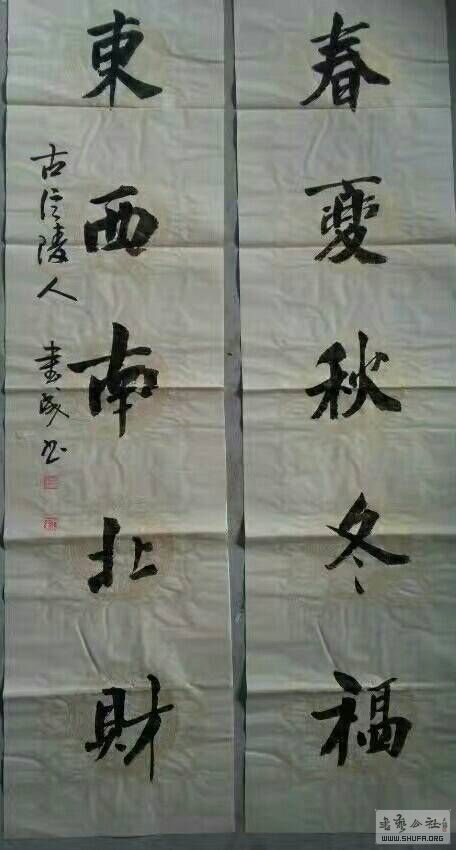 春夏秋冬福
東西南北財
古信陵人 書成书
书艺公社
WWW.SHUFA.ORG